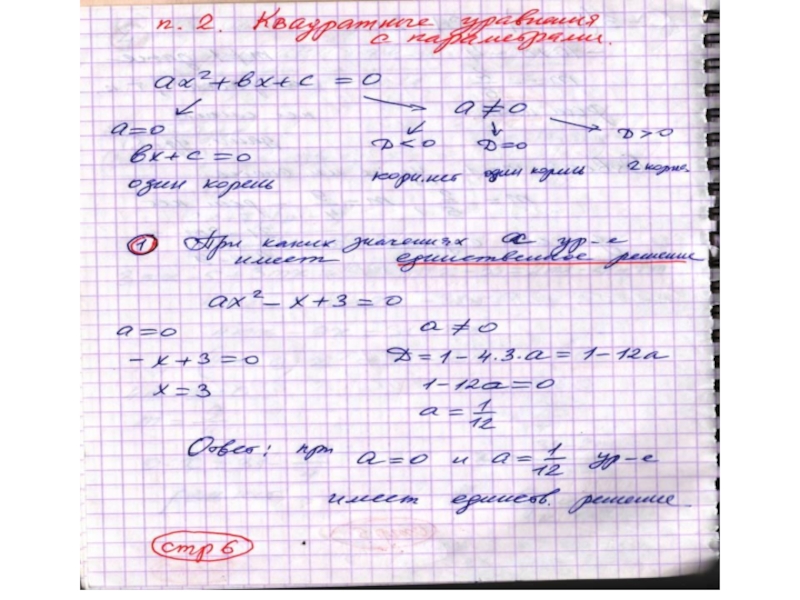 п. 2. Квадратные уравнения
с параметрами.
ax² + вx + c = 0
a = 0
a ≠ 0
вx + c = 0
D < 0
D = 0
D > 0
один корень
корн. нет
один корень
2 корня.
① При каких значениях a ур-е
имеет единственное решение
ax² - x + 3 = 0
a = 0
a ≠ 0
- x + 3 = 0
D = 1 - 4·3·a = 1 - 12a
x = 3
1 - 12a = 0
a = 1/12
Ответ: при a = 0 и a = 1/12 ур-е
имеет единств. решение
стр 6